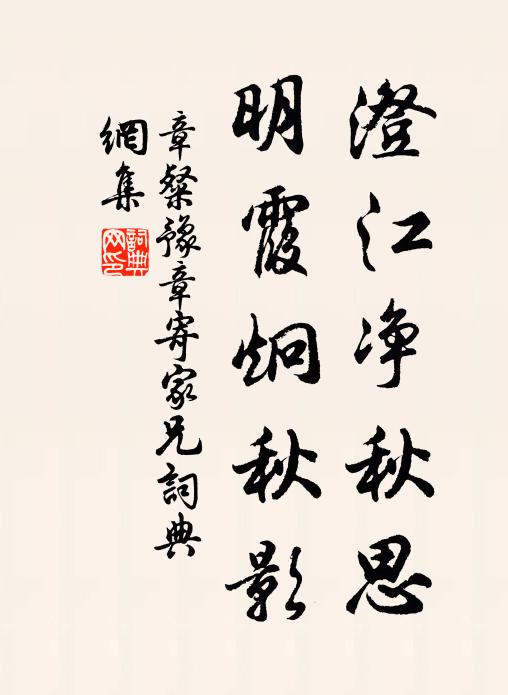 澄江净秋思
明霞炯秋影
章粲豫章寄家兄詞典
網集
詞典
网印